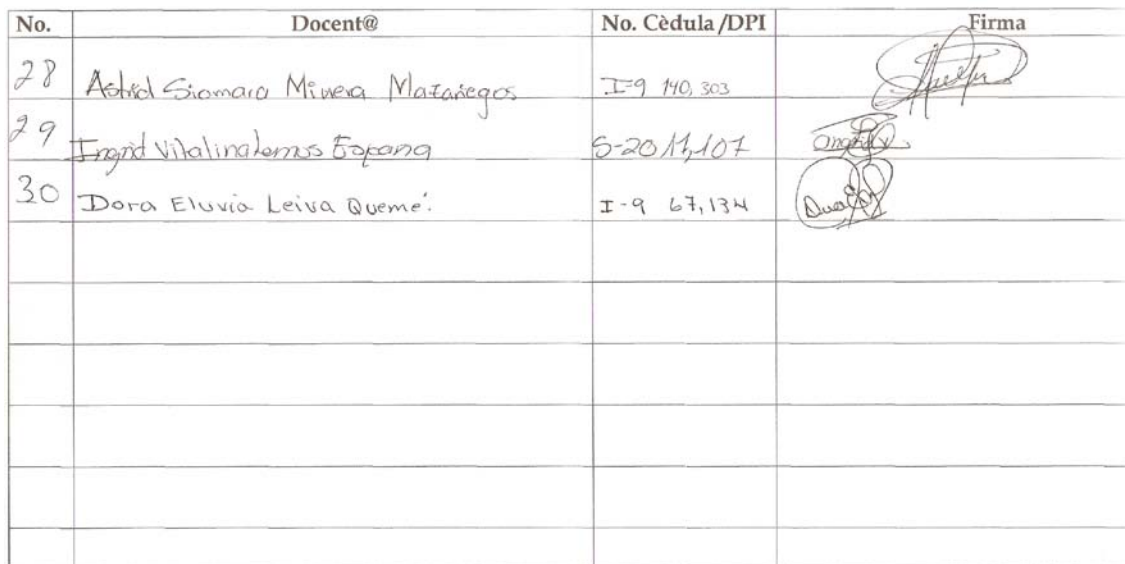 No. Docent@ No. Cèdula/DPI Firma
28 Astrid Siomara Minera Mazariegos I=9 140,303
29 Ingrid Vitalina Lemus España S-20 11,107
30 Dora Eluvia Leiva Quemé. I-9 67,134